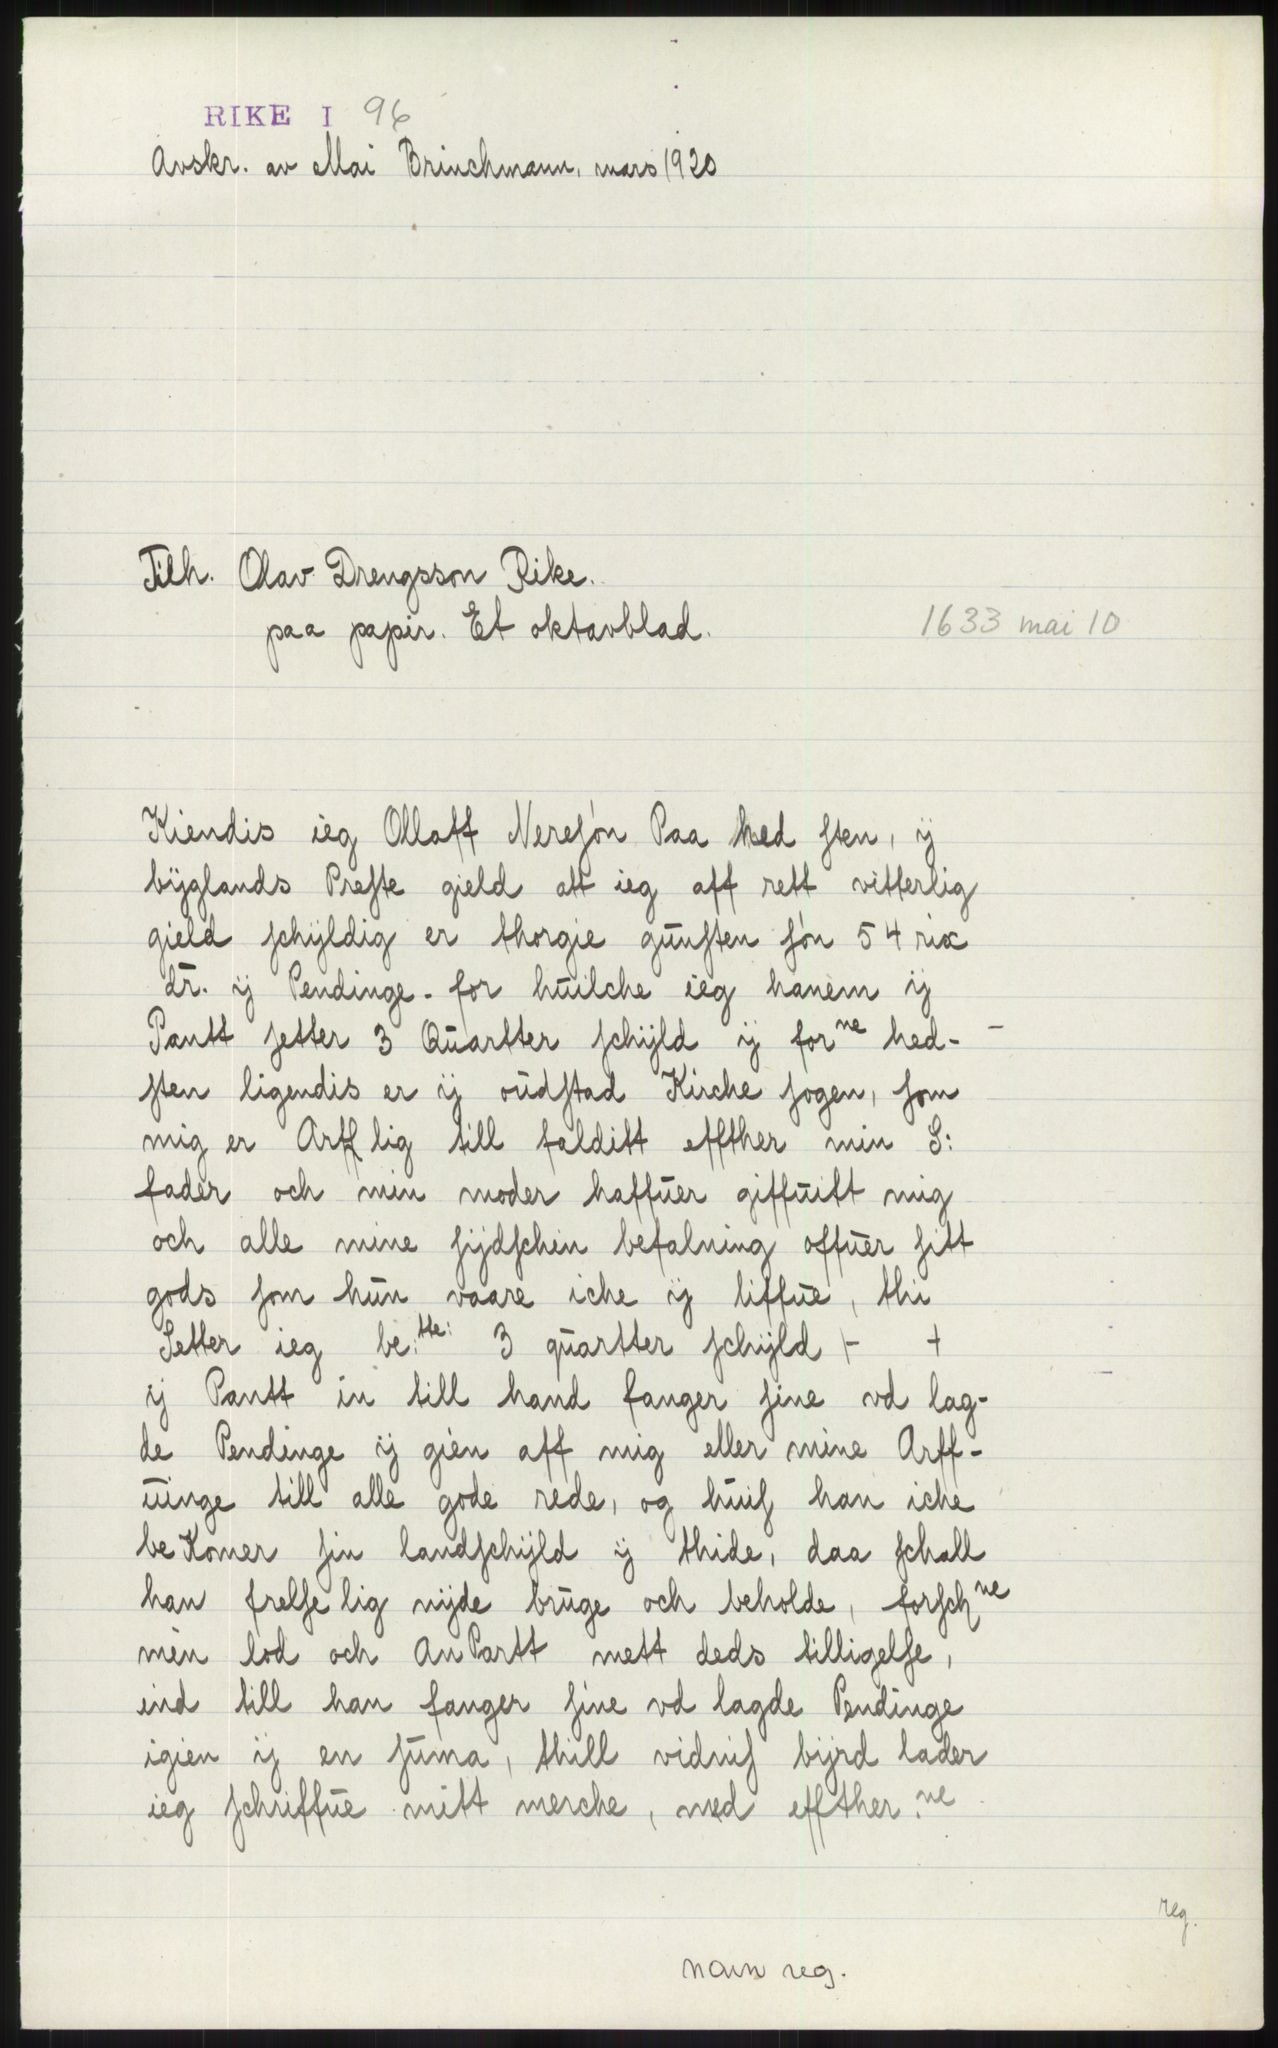 RIKE I 96
Avskr. av Mai Brinchmann, mars 1920
Tilh. Olav Drengsson Rike.
paa papir. Et oktavblad.
1633 mai 10
Kiendis ieg Ollaff Neresøn Paa hed sten, ÿ
bÿglands Preste gield att ieg aff rett vitterlig
gield schÿldig er thorgie gunsten søn 54 rix
dr. ÿ Pendinge. for huilche ieg hanem ÿ
Pantt setter 3 Quartter schÿld ÿ forne hed-
sten ligendis er ÿ oudstad Kirche sogen, som
mig er Arff lig till falditt effther min S:
fader och min moder haffuer giffuitt mig
och alle mine sÿdschin befalning offuer sitt
gods som hun vaare iche ÿ liffue, thi
Setter ieg be:tte: 3 quartter schÿld ÷ +
ÿ Pantt in till hand fanger sine vd lag-
de Pendinge ÿ gien aff mig eller mine Arff-
uinge till alle gode rede, og huis han iche
be Komer sin landschÿld ÿ thide, daa schall
han frelse lig nÿde bruge och beholde, forschne
min lod och An Partt mett deds tilligelse,
ind till han fanger sine vd lagde Pendinge
igien ÿ en suma, thill vidnis bÿrd lader
ieg schriffue mitt merche, ned effther:ne
reg.
navn reg.